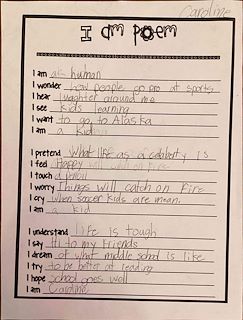 Caroline
I am poem
I am a human
I wonder how people go pro at sports
I hear laughter around me
I see kids learning
I want to go to Alaska
I am a kid
I pretend What life as a celebrity is
I feel Happy
I touch a pencil
I worry Things will catch on fire
I cry when soccer kids are mean.
I am a kid
I understand life is tough
I say Hi to my friends
I dream of what middle school is like
I try to be better at reading
I hope school goes well
I am Caroline